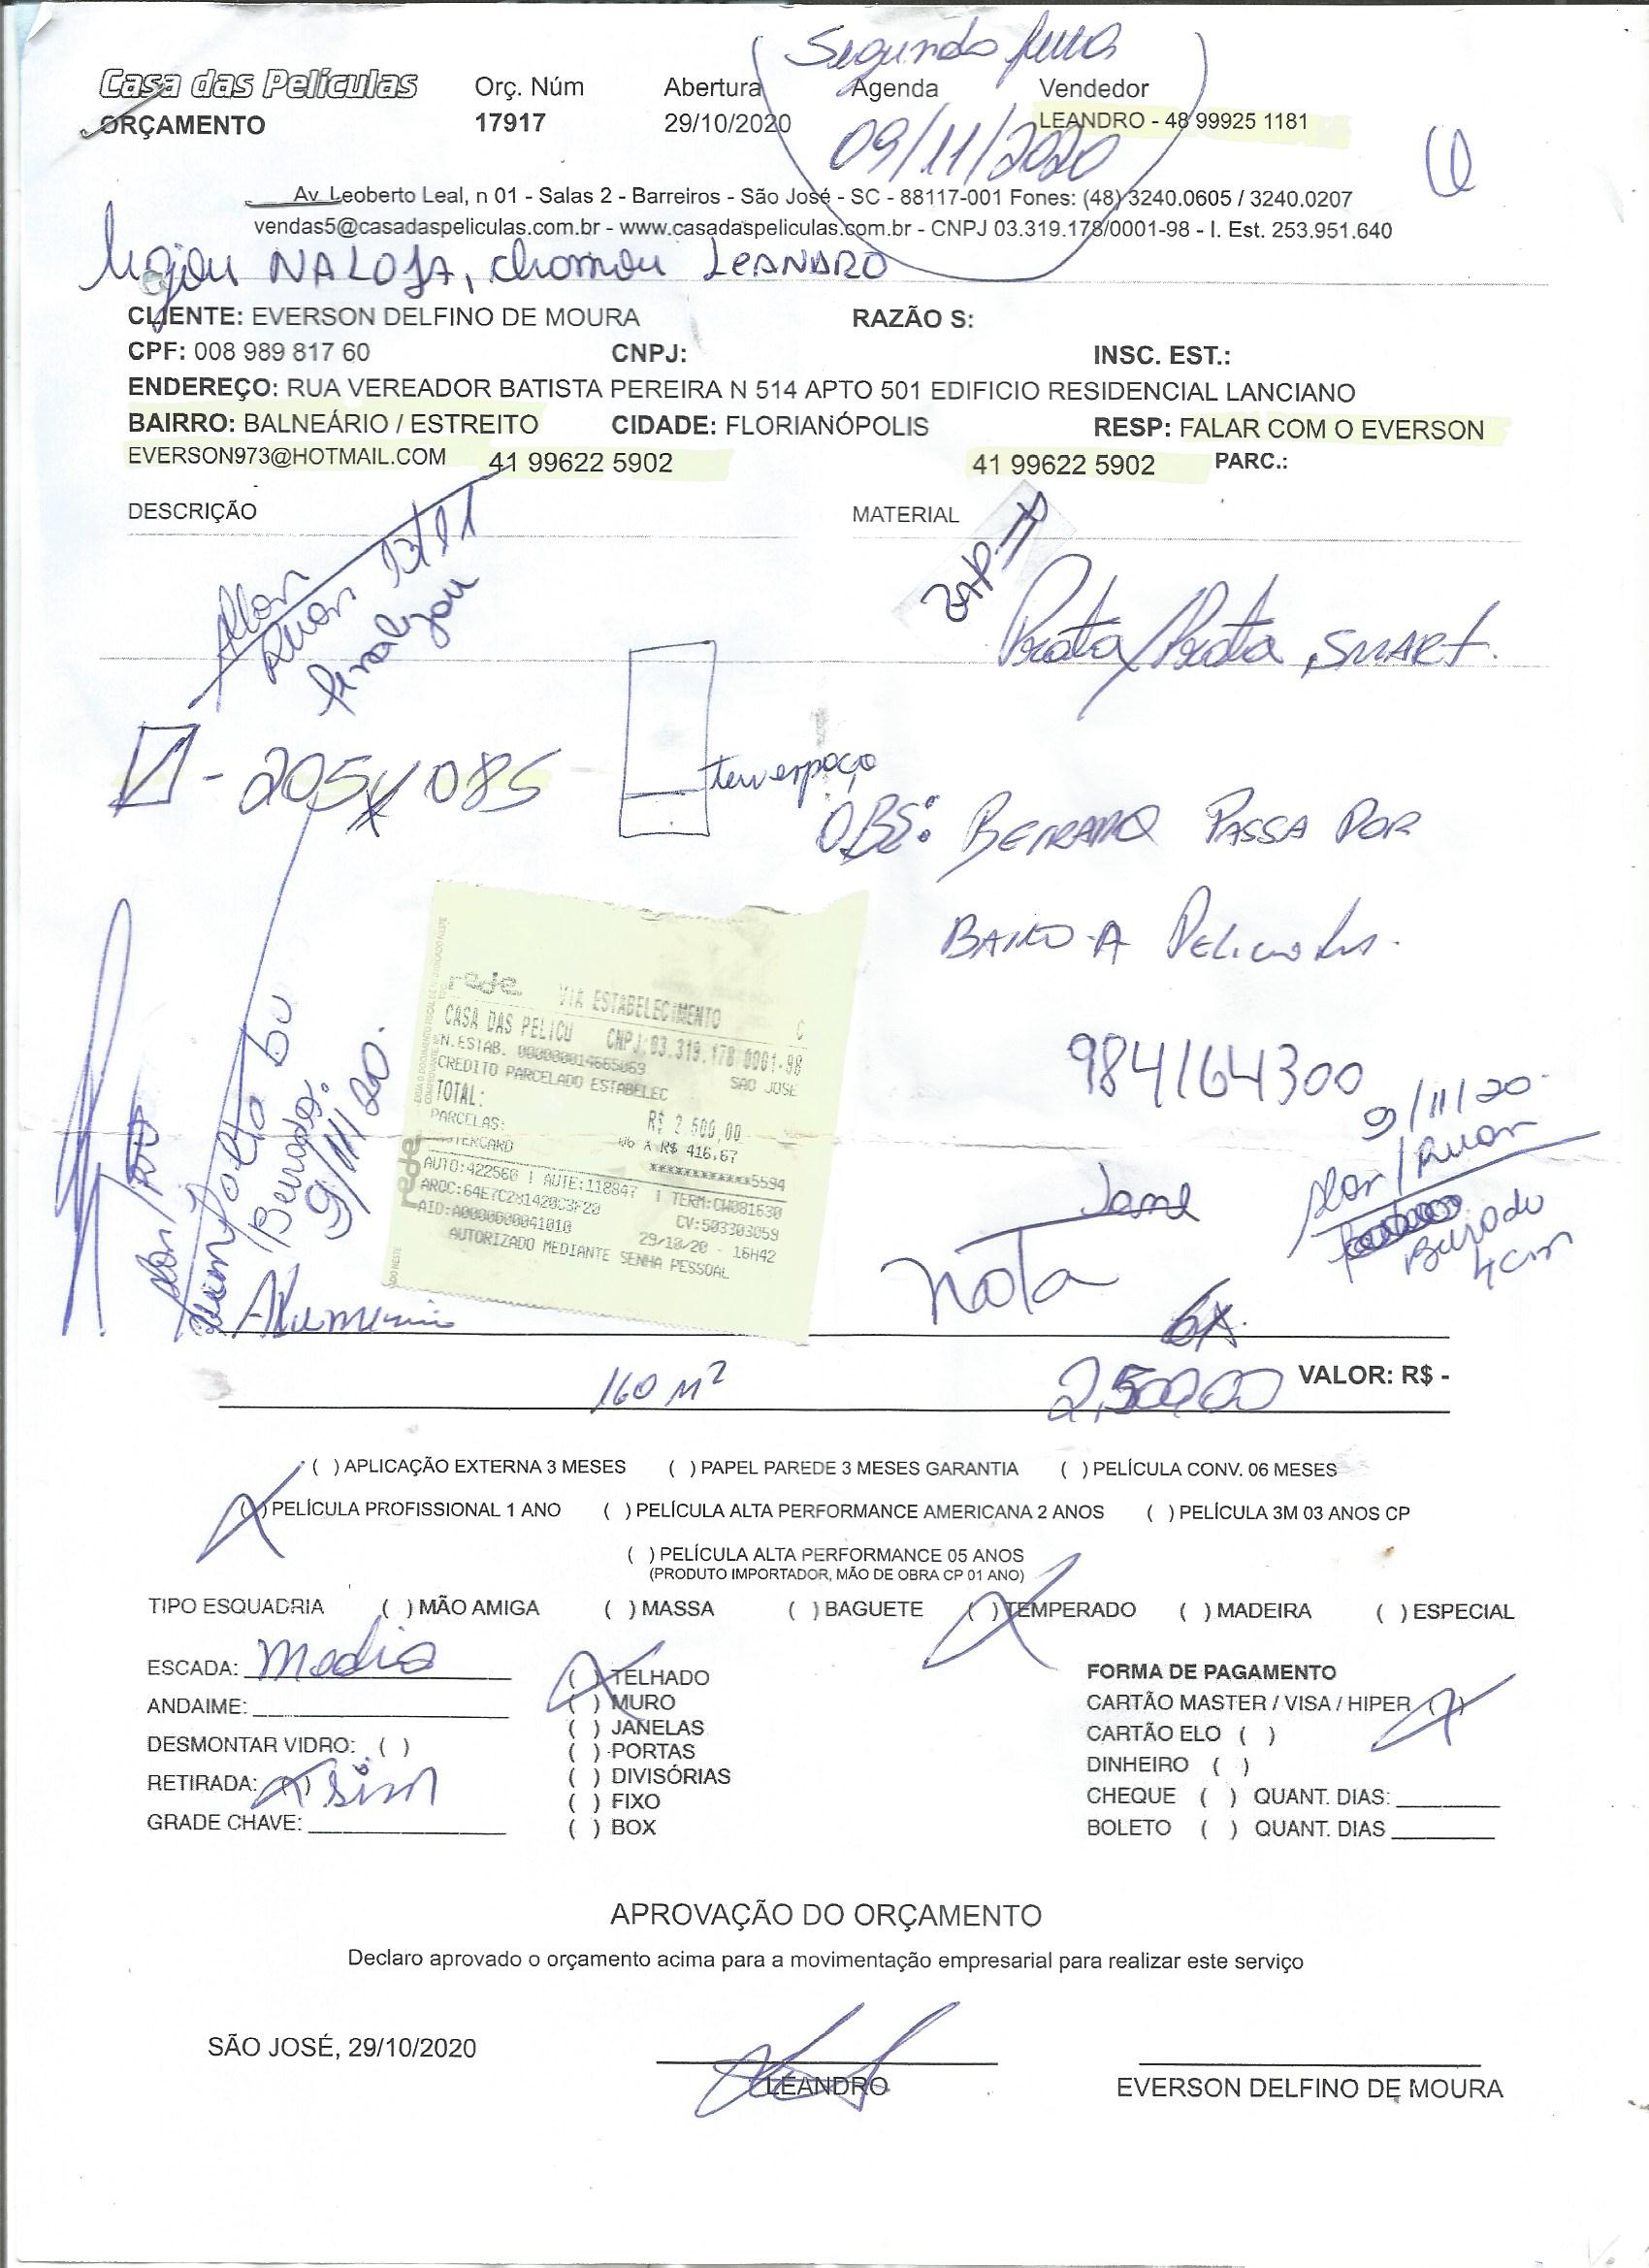 Segunda feira
Casa das Películas
Orç. Núm
Abertura
Agenda
Vendedor
ORÇAMENTO
17917
29/10/2020
09/11/2020
LEANDRO - 48 99925 1181
Av Leoberto Leal, n 01 - Salas 2 - Barreiros - São José - SC - 88117-001 Fones: (48) 3240.0605 / 3240.0207
vendas5@casadaspeliculas.com.br - www.casadaspeliculas.com.br - CNPJ 03.319.178/0001-98 - I. Est. 253.951.640
ligou NA LOJA, chamou LEANDRO
CLIENTE: EVERSON DELFINO DE MOURA
RAZÃO S:
CPF: 008 989 817 60
CNPJ:
INSC. EST.:
ENDEREÇO: RUA VEREADOR BATISTA PEREIRA N 514 APTO 501 EDIFICIO RESIDENCIAL LANCIANO
BAIRRO: BALNEÁRIO / ESTREITO
CIDADE: FLORIANÓPOLIS
RESP: FALAR COM O EVERSON
EVERSON973@HOTMAIL.COM
41 99622 5902
41 99622 5902
PARC.:
DESCRIÇÃO
MATERIAL
Ruan 13/11
finalizou
Prata/Prata SMART.
- 205 x 085
tem espaço
OBS: BEIRADA PASSA POR
BAIXO A PELICULA.
984164300
rede
VIA ESTABELECIMENTO
C
CASA DAS PELICU CNPJ:03.319.178/0001-98
N.ESTAB. 000000014665069
SAO JOSE
CREDITO PARCELADO ESTABELEC
TOTAL:
R$ 2 500,00
PARCELAS:
06 X R$ 416,67
MASTERCARD
************5594
AUTO:422560 | AUTE:118847 | TERM:CW081630
AROC:64E7C2B1420C3F20
CV:503303059
AID:A0000000041010
29/10/20 - 16H42
AUTORIZADO MEDIANTE SENHA PESSOAL
rede
9/11/20
9/11/20.
/Ruan
4cm
Nota
6x
160 M²
2,500,00
VALOR: R$ -
( ) APLICAÇÃO EXTERNA 3 MESES
( ) PAPEL PAREDE 3 MESES GARANTIA
( ) PELÍCULA CONV. 06 MESES
(X) PELÍCULA PROFISSIONAL 1 ANO
( ) PELÍCULA ALTA PERFORMANCE AMERICANA 2 ANOS
( ) PELÍCULA 3M 03 ANOS CP
( ) PELÍCULA ALTA PERFORMANCE 05 ANOS
(PRODUTO IMPORTADOR, MÃO DE OBRA CP 01 ANO)
TIPO ESQUADRIA
( ) MÃO AMIGA
( ) MASSA
( ) BAGUETE
(X) TEMPERADO
( ) MADEIRA
( ) ESPECIAL
ESCADA: Media
ANDAIME:
DESMONTAR VIDRO: ( )
RETIRADA: (X) sim
GRADE CHAVE:
(X) TELHADO
( ) MURO
( ) JANELAS
( ) PORTAS
( ) DIVISÓRIAS
( ) FIXO
( ) BOX
FORMA DE PAGAMENTO
CARTÃO MASTER / VISA / HIPER (X)
CARTÃO ELO ( )
DINHEIRO ( )
CHEQUE ( ) QUANT. DIAS:
BOLETO ( ) QUANT. DIAS
APROVAÇÃO DO ORÇAMENTO
Declaro aprovado o orçamento acima para a movimentação empresarial para realizar este serviço
SÃO JOSÉ, 29/10/2020
LEANDRO
EVERSON DELFINO DE MOURA